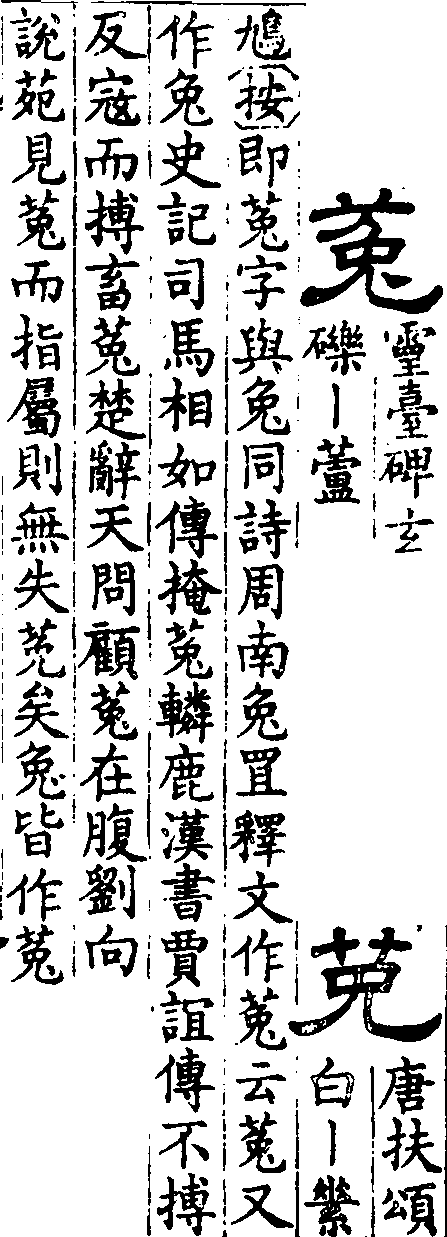 菟
靈臺碑玄
礫丨蘆
莵
唐扶頌
白丨素
鳩(按)即菟字與兔同詩周南兔罝釋文作菟云菟又
作兔史記司馬相如傳掩菟轔鹿漢書賈誼傳不搏
反寇而搏畜菟楚辭天問顧菟在腹劉向
說苑見菟而指屬則無失莵矣兔皆作菟